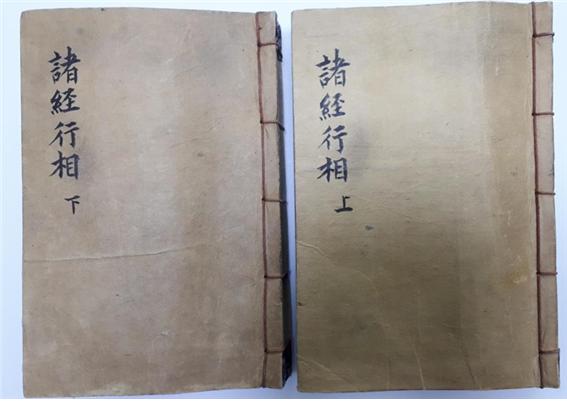 諸経行相 上
諸経行相 下